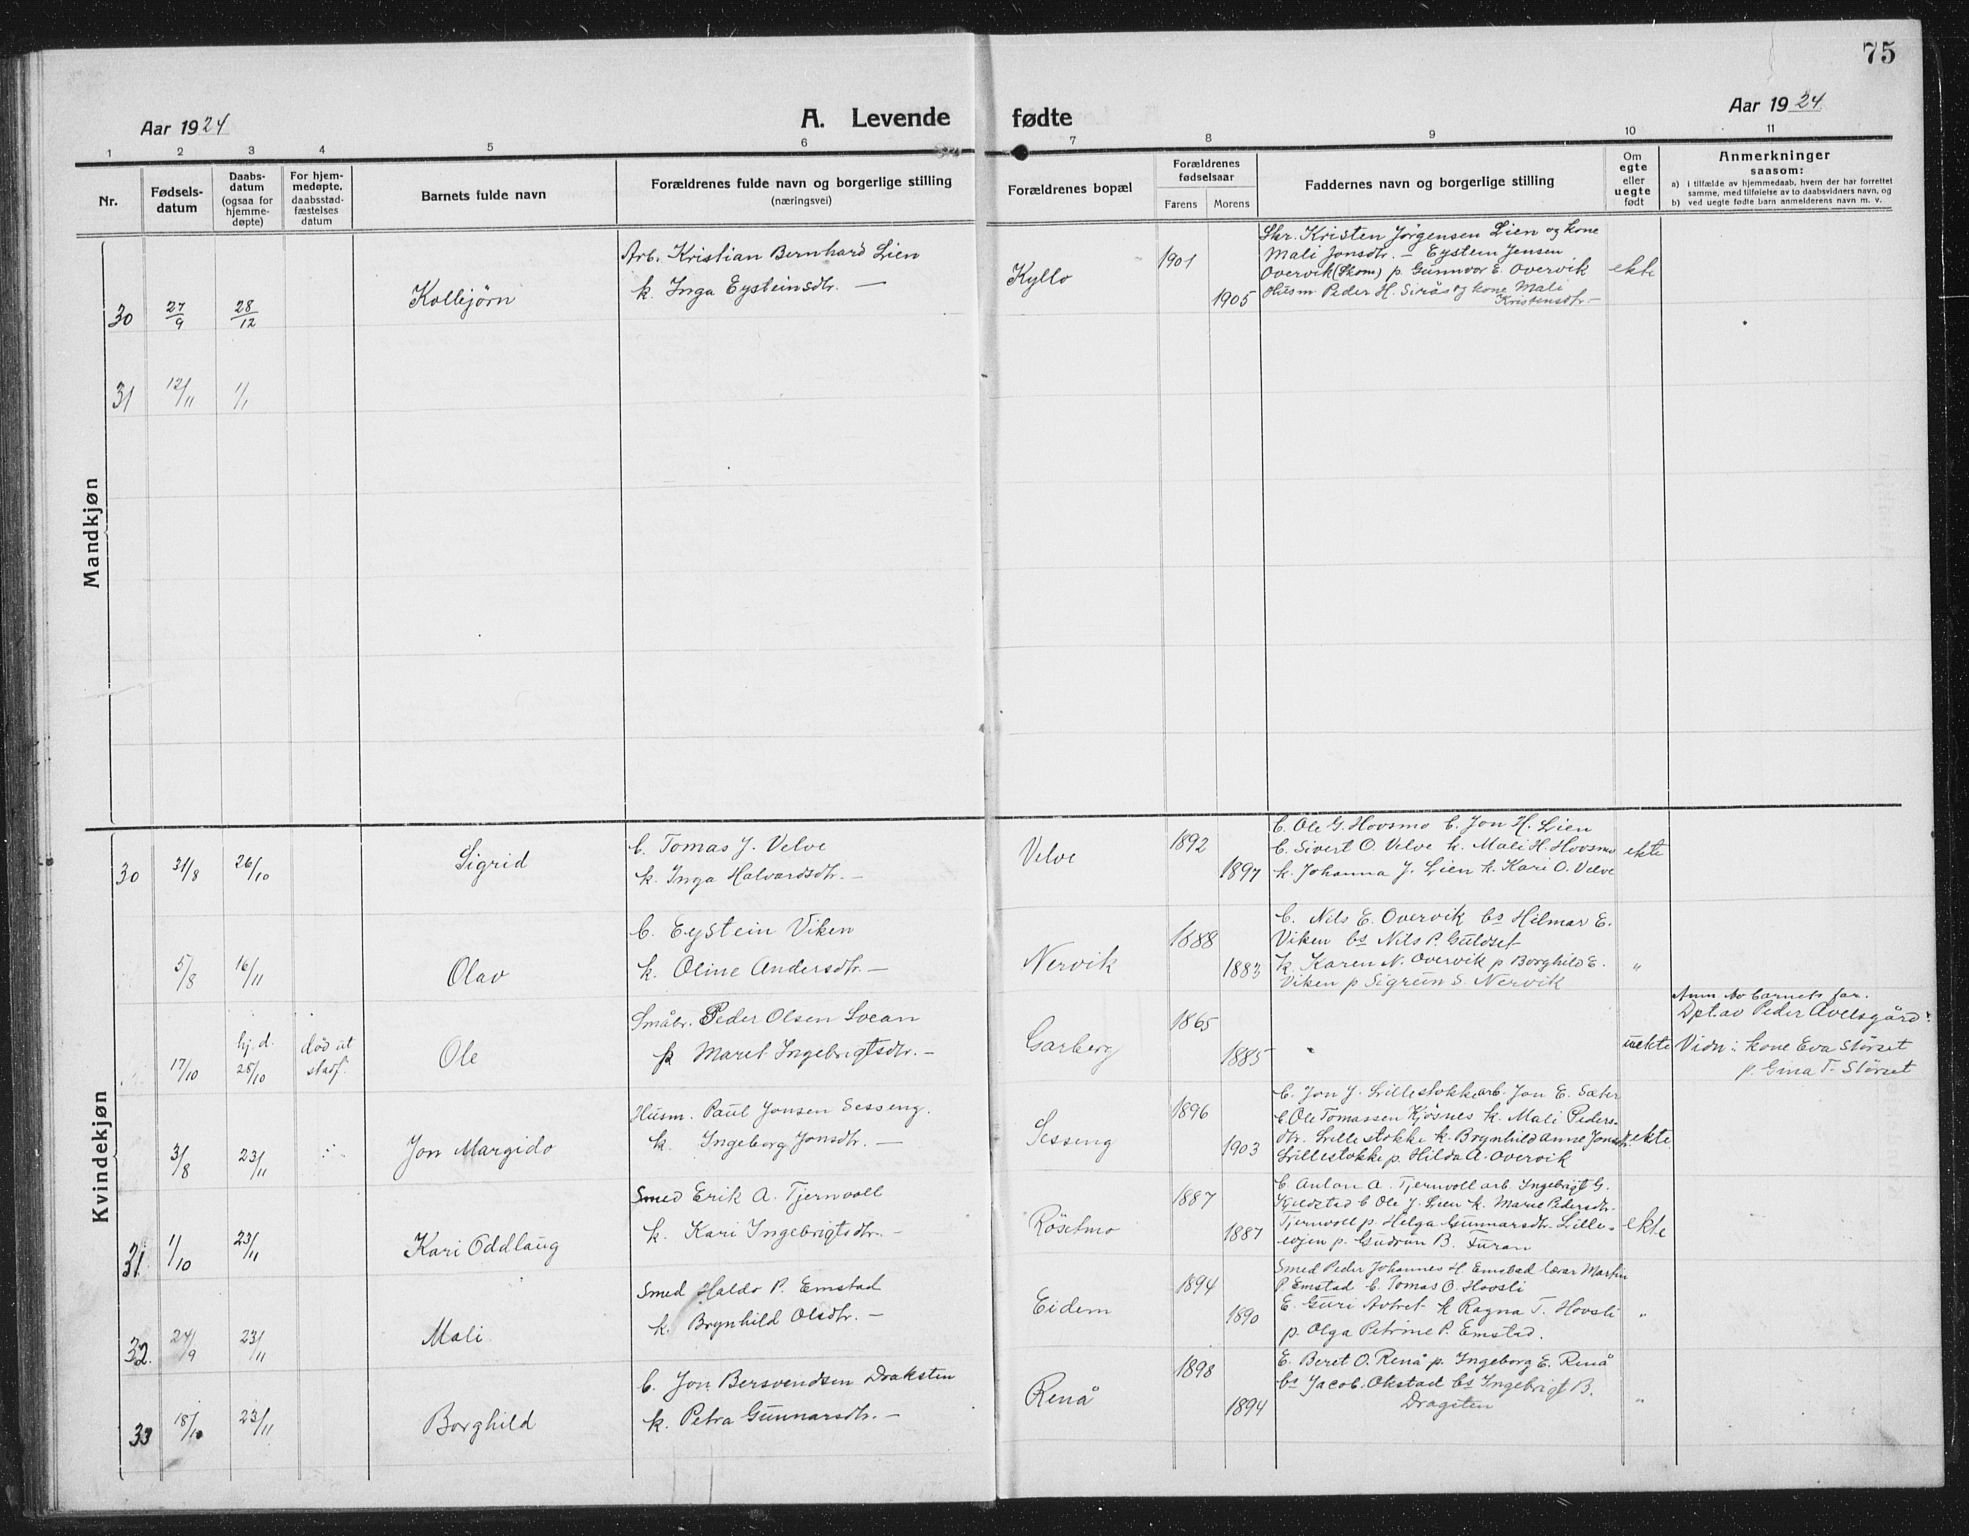 75
Aar 1924
A. Levende fødte
Aar 1924
1 2 3 4 5 6 7 8 9 10 11
Nr.
Fødsels-
datum
Daabs-
datum
(ogsaa for
hjemme-
døpte)
For hjem-
medøpte,
daabsstad-
fæstelses
datum
Barnets fulde navn
Forældrenes fulde navn og borgerlige stilling
(næringsvei)
Forældrenes bopæl
Forældrenes
fødselsaar
Farens Morens
Faddernes navn og borgerlige stilling
Om
egte
eller
uegte
født
Anmerkninger
saasom:
a) i tilfælde av hjemmedaab, hvem der har forrettet
samme, med tilføielse av to daabsvidners navn, og
b) ved uegte fødte barn anmelderens navn m. v.
Mandkjøn
30 27/9 28/12
Kolbjørn
Arb. Kristian Bernhard Lien
k. Inga Eysteinsdtr. —
Kyllo
1901
1905
Skr. Kristen Jørgensen Lien og kone
Mali Jonsdtr. — Eystein Jensen
Overvik (Skom) p. Gunnvor E. Overvik
Husm Peder H. Sirås og kone Mali
Kristensdtr —
ekte
31 12/11 1/1
Kvindekjøn
30 31/8 26/10
Sigrid
b. Tomas J. Velve
k. Inga Halvardsdtr. —
Velve
1892
1897
b. Ole G. Hovsmo b. Jon H. Lien
b. Sivert O. Velve k. Mali H. Hovsmo
k. Johanna J. Lien k. Kari O. Velve
ekte
5/8 16/11
Olav
b. Eystein Viken
k. Oline Andersdtr. —
Nervik
1888
1883
b. Nils E. Overvik bs Hilmar E.
Viken bs Nils P. Guldset
k. Karen N. Overvik p Borghild E.
Viken p Sigrun S. Nervik
"
17/10
hj. d.
28/10
død ut
stadf.
Ole
Småbr. Peder Olsen Svean
p Maret Ingebrigtsdtr. —
Garberg
1865
1885
uekte
Anm. av barnets far.
Dpt av Peder Avelsgård.
Vidn: kone Eva Størset
p. Gina T. Størset
3/8 23/11
Jon Margido
Husm. Paul Jonsen Sesseng.
k. Ingeborg Jonsdtr. —
Sesseng
1896
1903
b. Jon J. Lillestokke arb. Jon E. Sæter
b Ole Tomassen Kjøsnes k. Mali Peders-
dtr. Lillestokke k. Brynhild Anne Jonsdtr.
Lillestokke p. Hilda A. Overvik
ekte
31. 1/10 23/11
Kari Oddlaug
Smed Erik A. Tjernvoll
k. Kari Ingebrigtsdtr. —
Røsetmo
1887
1887
b. Anton A. Tjernvoll arb. Ingebrigt G.
b Ole J. Lien k. Marie Pedersdtr.
Tjernvoll p. Helga Gunnarsdtr. Lille-
evjen p. Gudrun B. Furan
ekte
32. 24/9 23/11
Mali
Smed Haldo P. Emstad
k. Brynhild Olsdtr. —
Eidem
1894
1890
Smed Peder Johannes H Emstad lærar Martin
P. Emstad b. Tomas O. Hovsli
E. Guri Avtret k Ragna T. Hovsli
p. Olga Petrine P. Emstad.
"
33 18/10 23/11
Borghild
b. Jon Bersvendsen Draksten
k. Petra Gunnarsdtr. —
Renå
1898
1894
E. Beret O. Renå p. Ingeborg E. Renå
bs Jacob. Okstad bs Ingebrigt B.
Dragsten
"